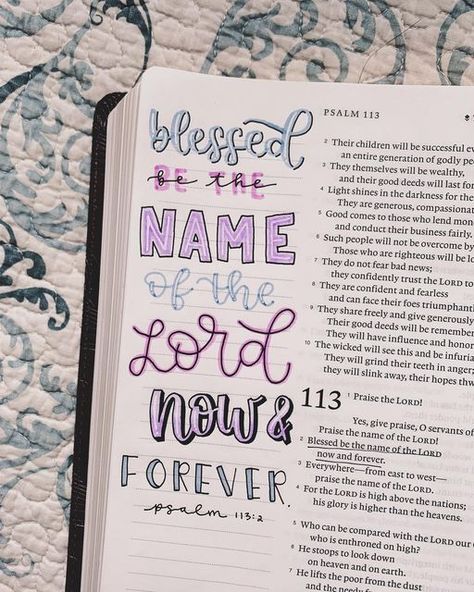 blessed
BE THE
be the
NAME
of the
Lord
NOW &
FOREVER.
psalm 113:2
PSALM 113
2 Their children will be successful
an entire generation of godly
3 They themselves will be wealthy,
and their good deeds will last
4 Light shines in the darkness for the
They are generous, compassionate
5 Good comes to those who lend
and conduct their business fairly.
6 Such people will not be overcome by
Those who are righteous will be
7 They do not fear bad news;
they confidently trust the LORD
8 They are confident and fearless
and can face their foes triumphantly
9 They share freely and give generously
Their good deeds will be
They will have influence and
10 The wicked will see this and be
They will grind their teeth in anger;
they will slink away, their hopes
113
1 Praise the LORD!
Yes, give praise, O servants of
Praise the name of the LORD!
2 Blessed be the name of the LORD
now and forever.
3 Everywhere—from east to west—
praise the name of the LORD.
4 For the LORD is high above the nations;
his glory is higher than the heavens.
5 Who can be compared with the LORD our
who is enthroned on high?
6 He stoops to look down
on heaven and on earth.
7 He lifts the poor from the dust
and the needy